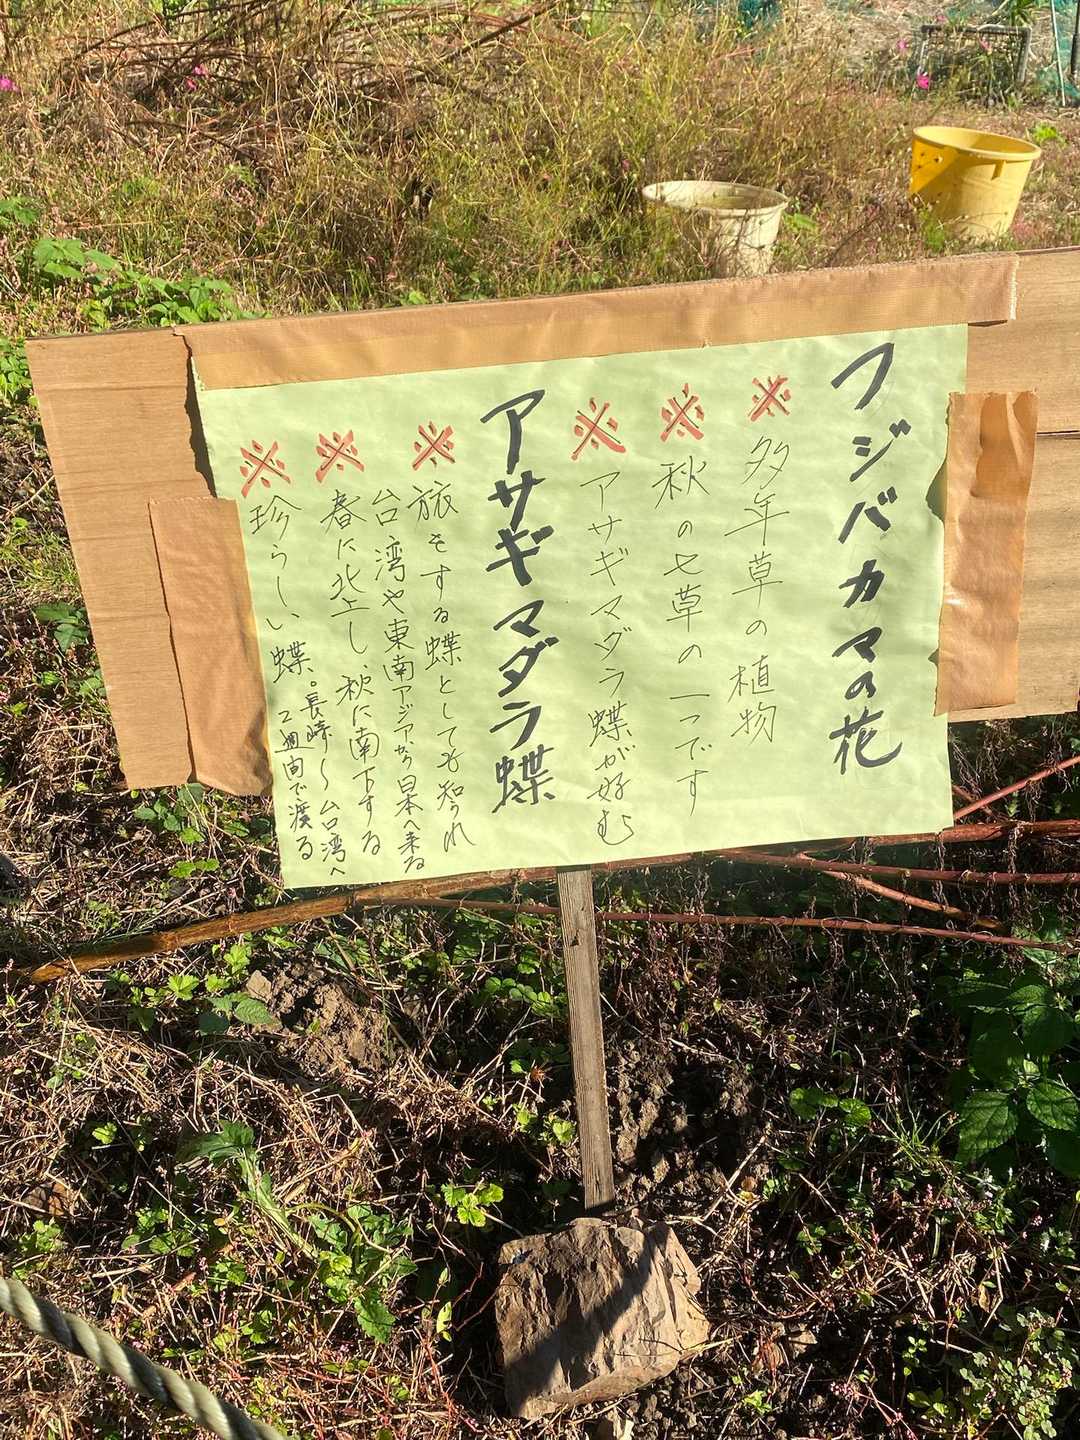 フジバカマの花
※多年草の植物
※秋の七草の一つです
※アサギマダラ蝶が好む
アサギマダラ蝶
※旅をする蝶としても知られ
台湾や東南アジアから日本へ来る
※春に北上し、秋に南下する
※珍らしい蝶。長崎〜台湾へ
2週間で渡る